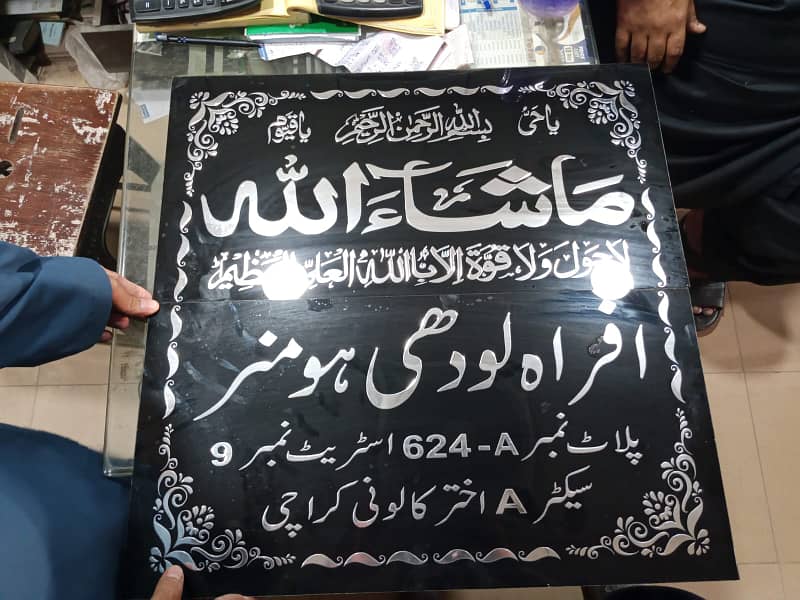 یا حیُّ بِسْمِ اللّٰہِ الرَّحْمٰنِ الرَّحِیْمِ یا قیّوم
مَاشَاءَ اللہ
لَا حَوْلَ وَلَا قُوَّةَ اِلَّا بِاللّٰہِ الْعَلِیِّ الْعَظِیْم
افراہ لودھی ہومنر
پلاٹ نمبر 624-A اسٹریٹ نمبر 9
سیکٹر A اختر کالونی کراچی